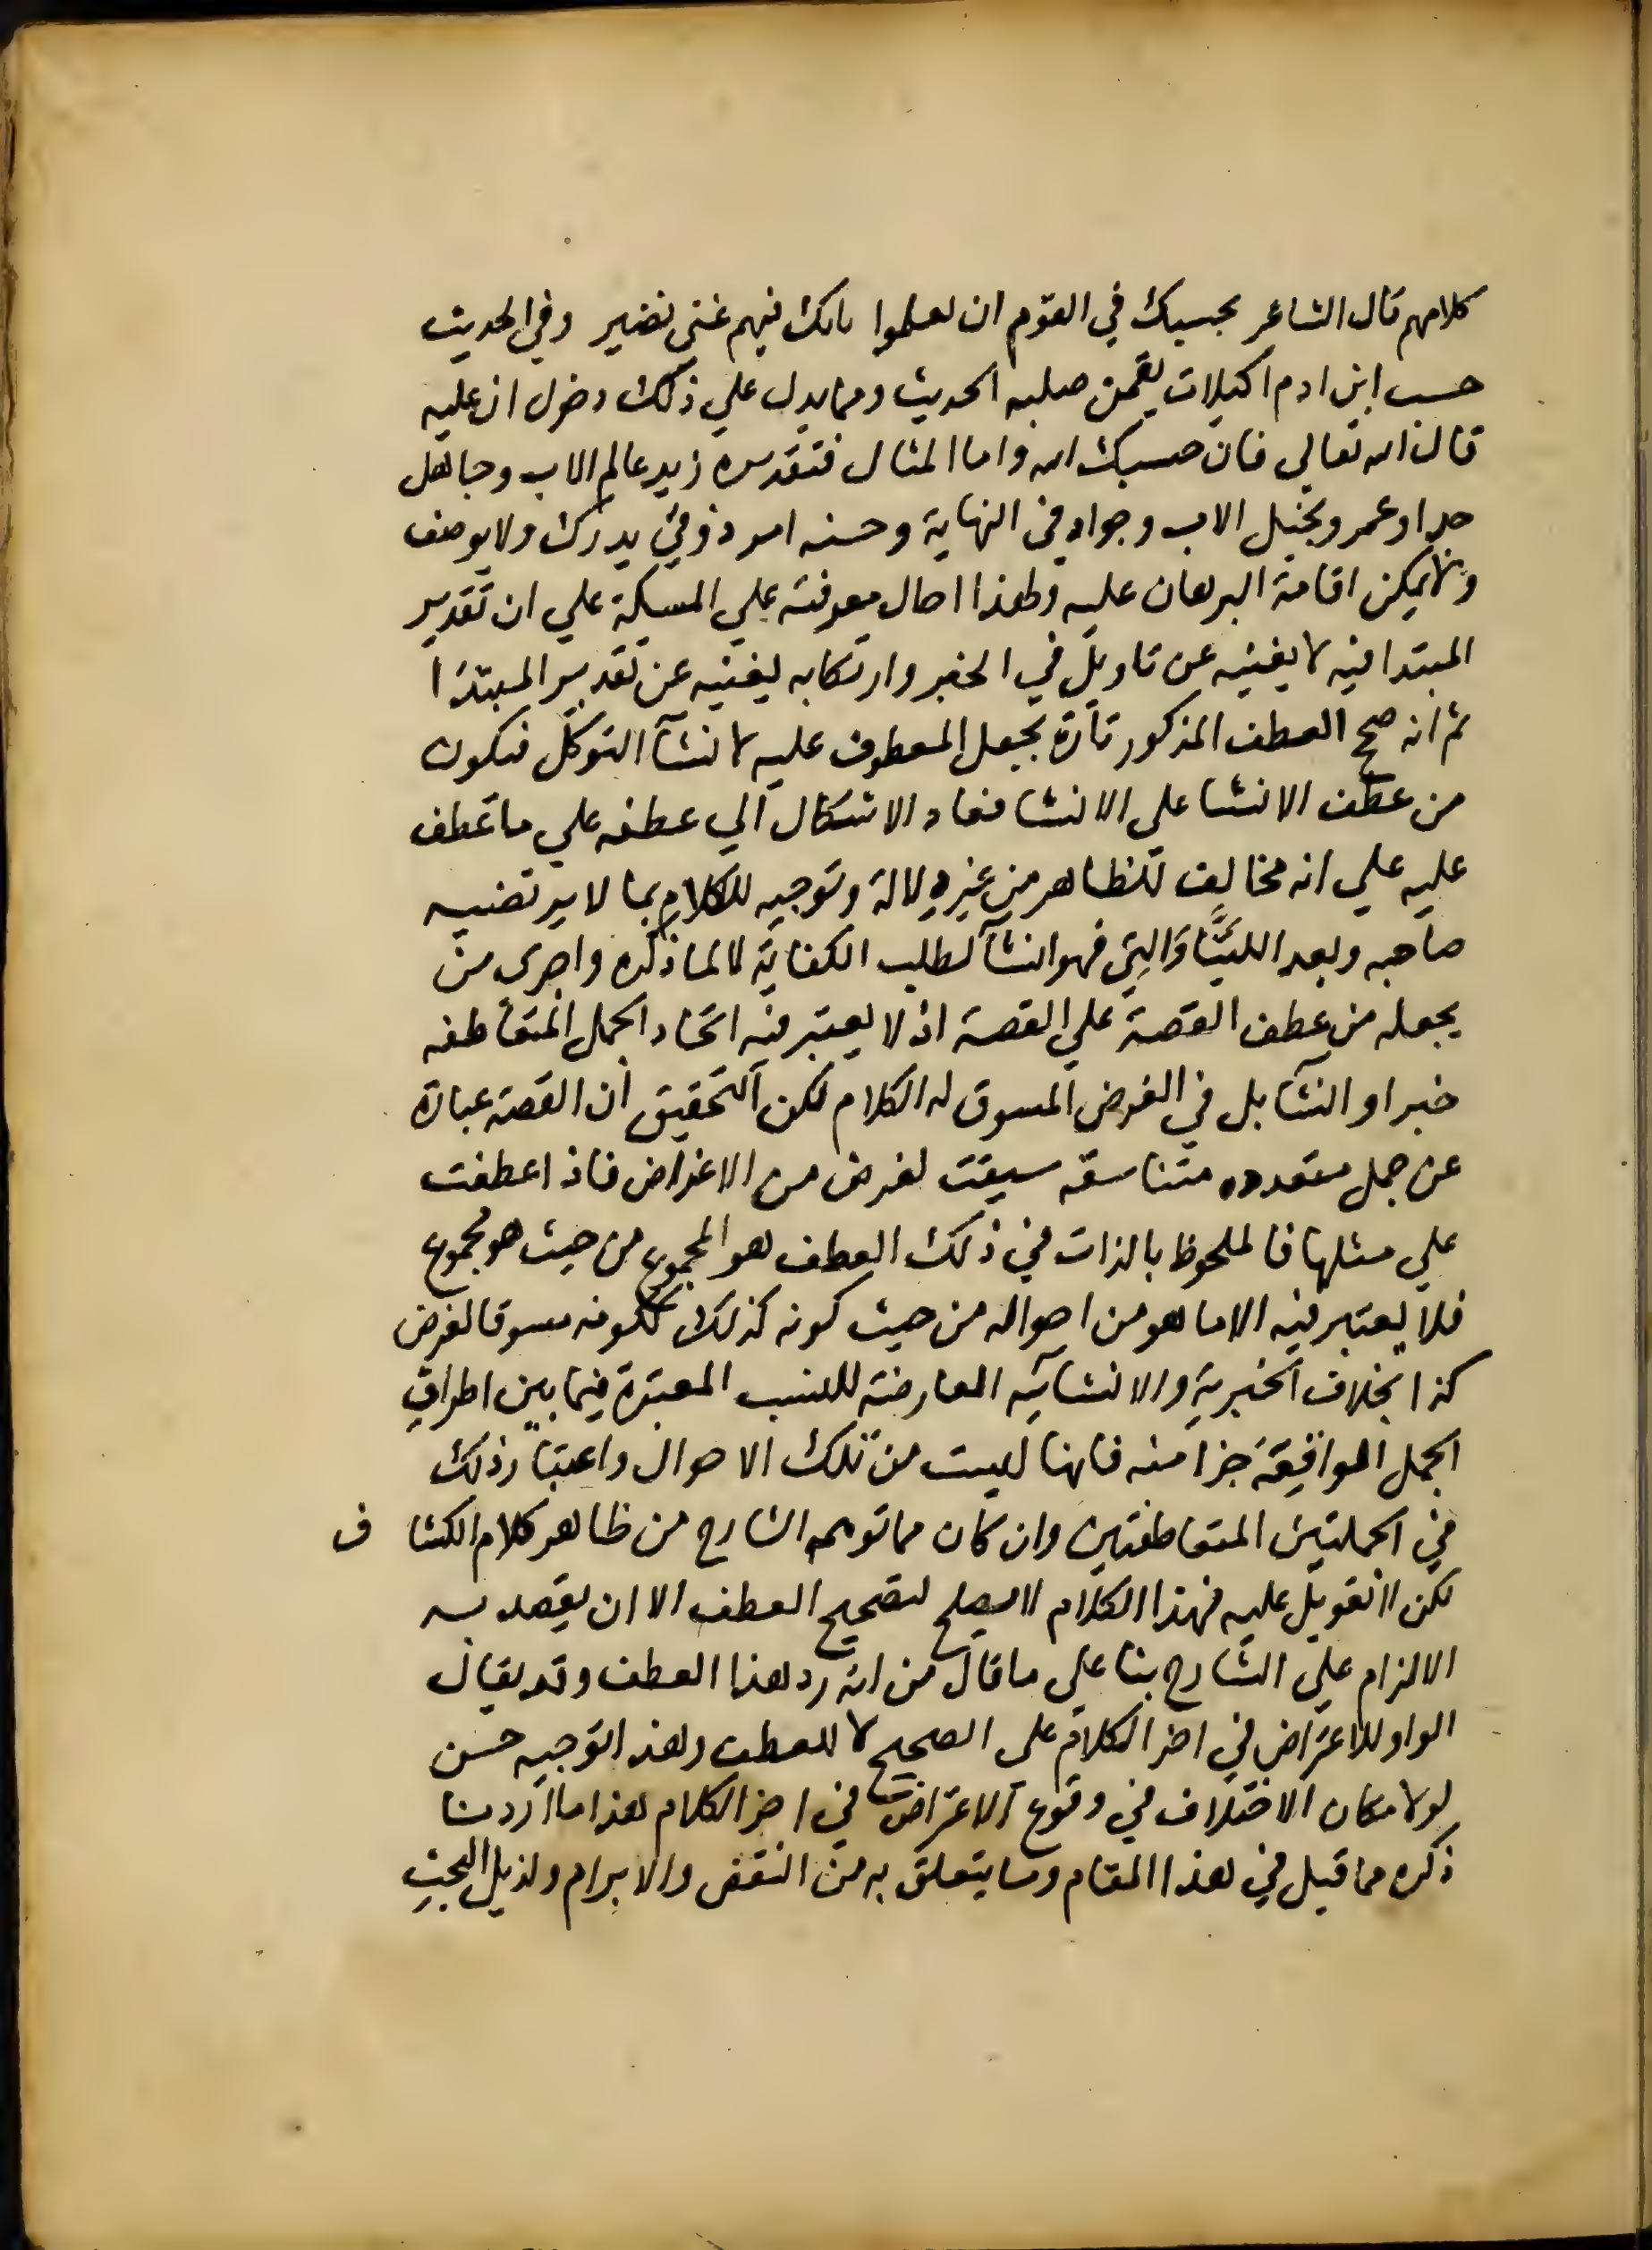 كلامهم قال الشاعر بحسبك في القوم ان لعلموا بانك فيهم غني نضير وفي الحديث
حسب ابن ادم اكيلات يقمن صلبه الحديث ومما يدل علي ذلك دخول ان عليه
قال الله تعالي فان حسبك الله واما المثال فتقديره زيد عالم الاب وجاهل
جدا وعمرو بخيل الاب وجواد في النهاية وحسنه امر ذوقي يدرك ولا يوصف
ولا يمكن اقامة البرهان عليه ولهذا احال معرفته علي المسكة علي ان تقدير
المبتدا فيه لا يغنيه عن تاويل في الخبر وارتكابه يغنيه عن تقدير المبتدا
ثم انه صحح العطف المذكور تارة بجعل المعطوف عليه لانشآ التوكل فيكون
من عطف الانشا علي الانشا فعاد الاشكال الي عطفه علي ما عطف
عليه علي انه مخالف للظاهر من غير دلالة وتوجيه للكلام بما لا يرتضيه
صاحبه وبعد اللتيَّا والتي فهو انشآ لطلب الكفاية لا لما ذكره واجرى من
يجعله من عطف القصة علي القصة اذ لا يعتبر فيه اتحاد الجمل المتعاطفه
خبرا او انشآ بل في الغرض المسوق له الكلام لكن التحقيق ان القصة عبارة
عن جمل متعدده متناسقه سيقت لغرض من الاغراض فاذا عطفت
علي مثلها فالملحوظ بالذات في ذلك العطف هو المجموع من حيث هو مجموع
فلا يعتبر فيه الا ما هو من احواله من حيث كونه كذلك ككونه مسوقا لغرض
كذا بخلاف الخبرية والانشائيه العارضة للنسب المعتبرة فيما بين اطراف
الجمل الواقعة جزا منه فانها ليست من تلك الاحوال واعتبار ذلك
في الجملتين المتعاطفتين وان كان مما توهمه الشارح من ظاهر كلام الكشاف
لكن لا تعويل عليه فهذا الكلام لا يصلح لتصحيح العطف الا ان يقصد به
الالزام علي الشارح بنا علي ما قال من انه رد هذا العطف وقد يقال
الواو للاعتراض في اخر الكلام على الصحيح لا للعطف وهذا توجيه حسن
لولا مكان الاختلاف في وقوع الاعتراض في اخر الكلام هذا ما اردنا
ذكره مما قيل في هذا المقام وما يتعلق به من النقض والابرام ولذيل البحث